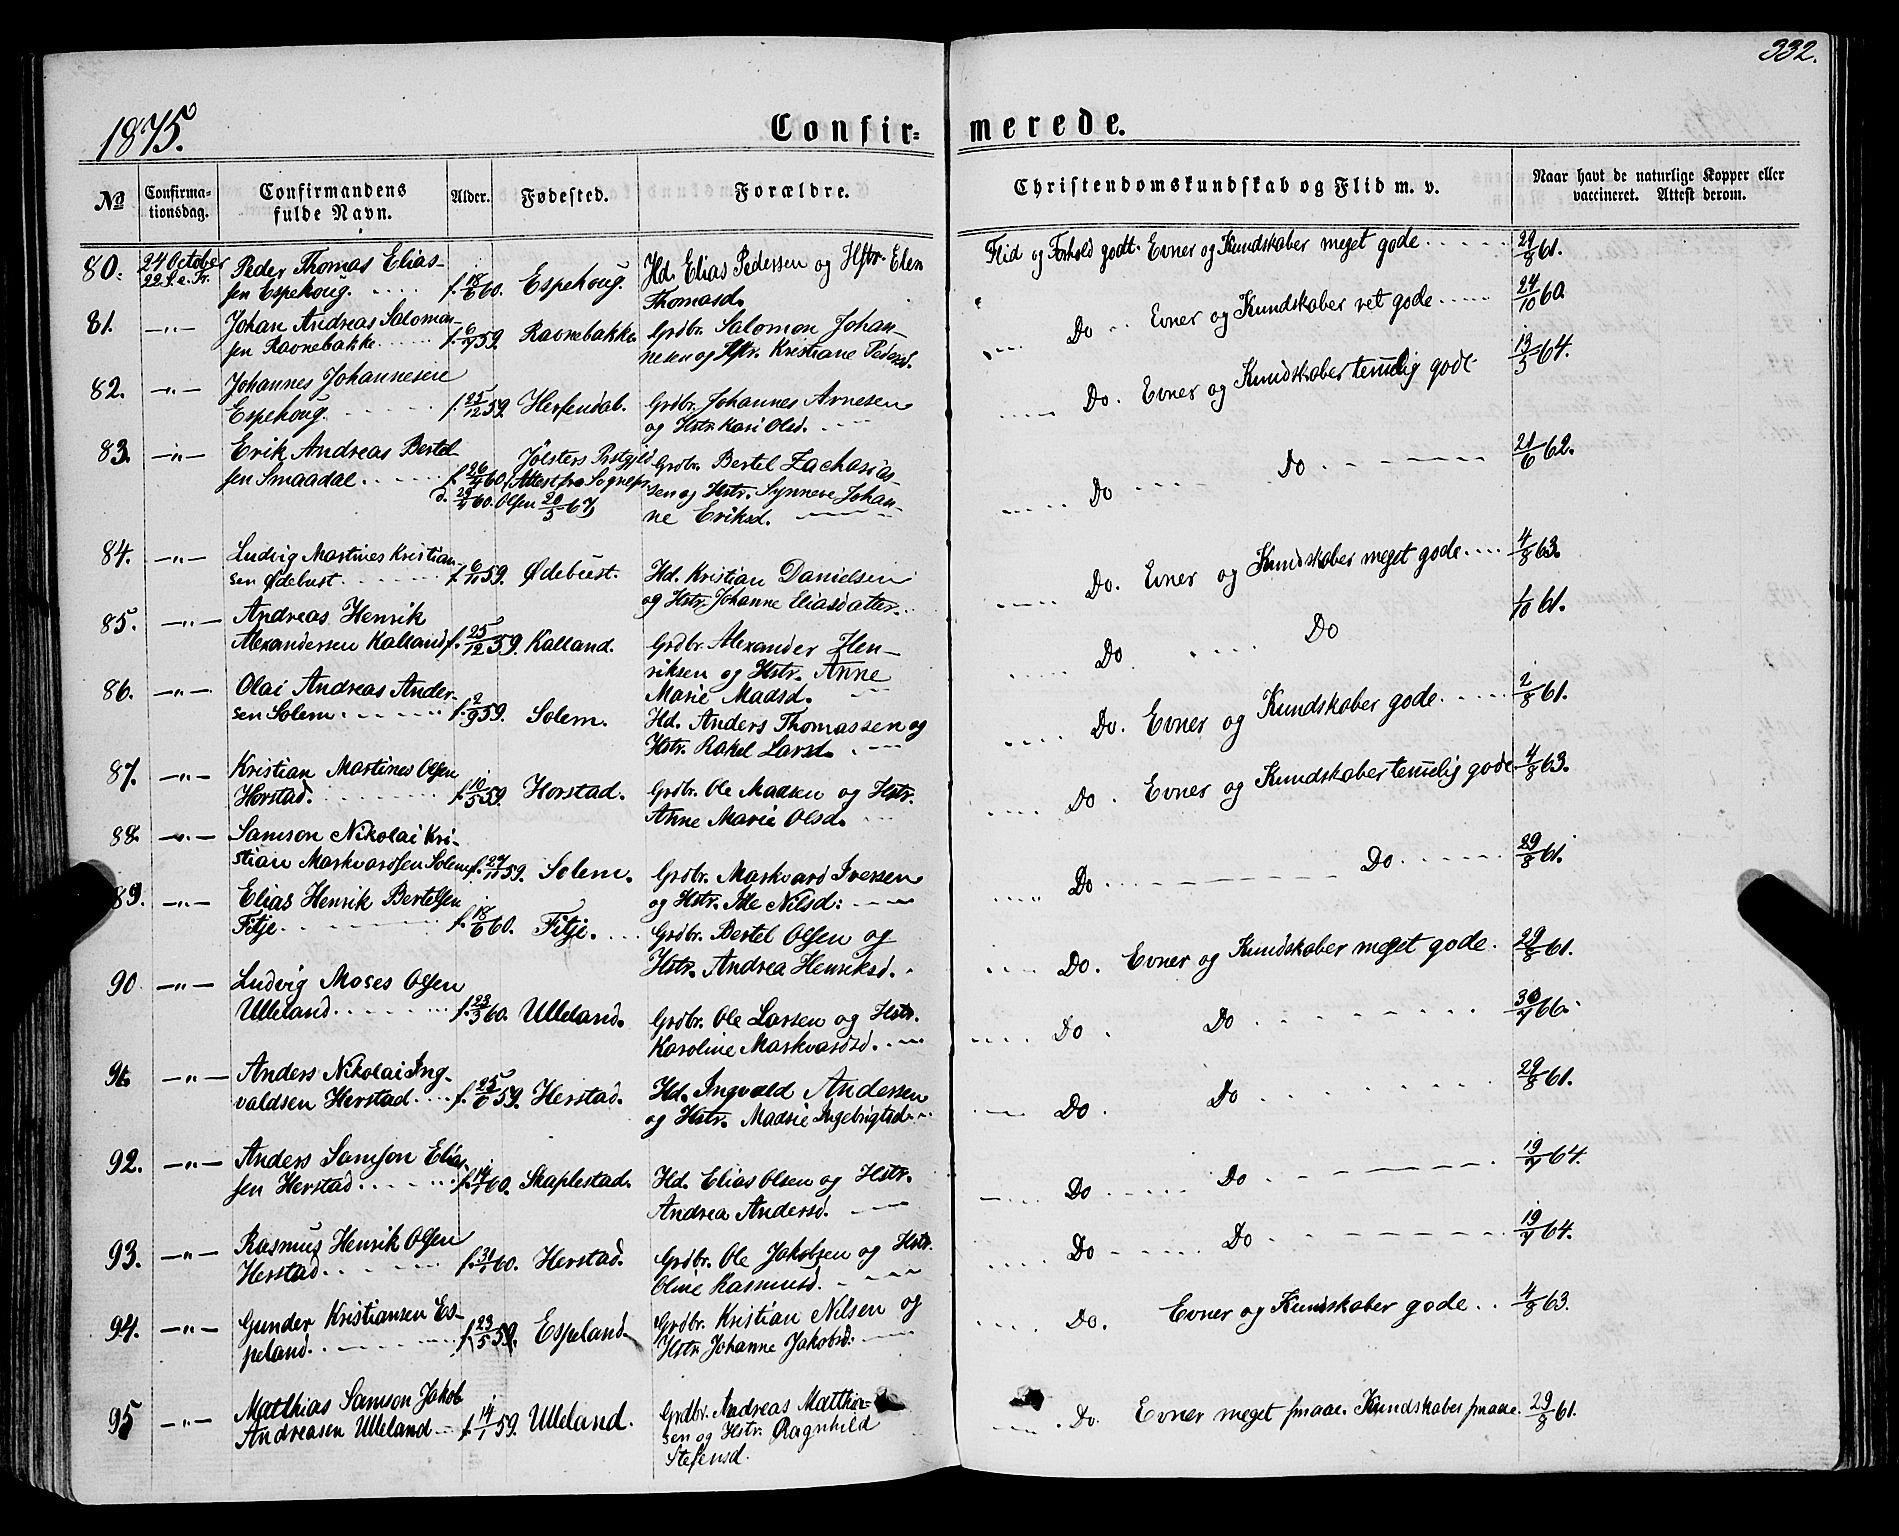 332.
1875.
Confir= merede.
No Confirma-tionsdag. Confirmandens fulde Navn. Alder. Fødested. Forældre. Christendomskundskab og Flid m. v. Naar havt de naturlige Kopper eller vaccineret. Attest derom.
80. 24 October Peder Thomas Elias- Hd. Elias Pedersen og Hstr. Elen Flid og Forhold godt. Evner og Kundskaber meget gode 29/8 61.
22 S. e. Tr. sen Espehoug. f. 18/6 60. Espehoug. Thomasd.
81. -"- Johan Andreas Salomon- f. 6/7 59. Ravnebakke. Grdbr. Salomon Johan- Do Evner og Kundskaber ret gode 24/10 60.
sen Ravnebakke. nesen og Hstr. Kristiane Pedersd.
82. -"- Johannes Johannesen Do. Evner og Kundskaber temelig gode 13/5 64.
Espehoug. f. 25/12 59. Herfindal. Grdbr. Johannes Arnesen
og Hstr. Kari Olsd.
83. -"- Erik Andreas Bertel- Jølsters Prstgjeld Grdbr. Bertel Zacharias- Do Do 21/6 62.
sen Smaadal. f. 26/4 60. (Attest fra Sognepr. sen og Hstr. Synneve Johan-
d. 29/4 60. Olsen 20/5 67) ne Eriksd.
84. -"- Ludvig Martines Kristian- Do. Evner og Kundskaber meget gode 4/8 63.
sen Ødebust. f. 6/11 59. Ødebust. Hd. Kristian Danielsen
og Hstr. Johanne Eliasdatter.
85. -"- Andreas Henrik Do Do 1/10 61.
Alexandersen Kalland f. 25/12 59. Kalland. Grdbr. Alexander Hen-
riksen og Hstr. Anne
Marie Madsd.
86. -"- Olai Andreas Ander- Do. Evner og Kundskaber gode. 2/8 61.
sen Solem. f. 2/9 59. Solem. Hd. Anders Thomassen og
Hstr. Rakel Larsd.
87. -"- Kristian Martines Olsen Do. Evner og Kundskaber temelig gode 4/8 63.
Horstad. f. 10/5 59. Horstad. Grdbr. Ole Madsen og Hstr.
Anne Marie Olsd.
88. -"- Samson Nikolai Kri- Do Do 29/8 61.
stian Markvardsen Solem f. 27/11 59. Solem. Grdbr. Markvard Iversen
og Hstr. Ale Nilsd:
89. -"- Elias Henrik Bertelsen
Fitje. f. 18/6 60. Fitje. Grdbr. Bertel Olsen og Do. Evner og Kundskaber meget gode. 29/8 61.
Hstr. Andrea Henriksd.
90 -"- Ludvig Moses Olsen
Ulleland. f. 23/3 60. Ulleland. Grdbr. Ole Larsen og Hstr. Do Do 30/7 66.
Karoline Markvardsd.
91. -"- Anders Nikolai Ing- Hd. Ingvald Andersen Do Do 29/8 61.
valdsen Herstad f. 25/6 59. Herstad. og Hstr. Madsie Ingebrigtsd.
92. -"- Anders Samson Elias- Do Do 19/7 64.
sen Herstad. f. 14/1 60. Skaplestad. Hd. Elias Olsen og Hstr.
Andrea Andersd.
93. -"- Rasmus Henrik Olsen Do Do 19/7 64.
Herstad. f. 31/1 60. Herstad. Grdbr. Ole Jakobsen og Hstr.
Oline Rasmusd.
94. -"- Gunder Kristiansen Es- Grdbr. Kristian Nilsen og Do. Evner og Kundskaber gode 4/8 63.
peland. f. 23/5 59. Espeland. Hstr. Johanne Jakobsd:
95 -"- Matthias Samson Jakob Grdbr. Andreas Matthia- Do. Evner meget smaae. Kundskaber smaae. 29/8 61.
Andreasen Ulleland f. 14/1 59. Ulleland. sen og Hstr. Ragnhild
Stefensd.